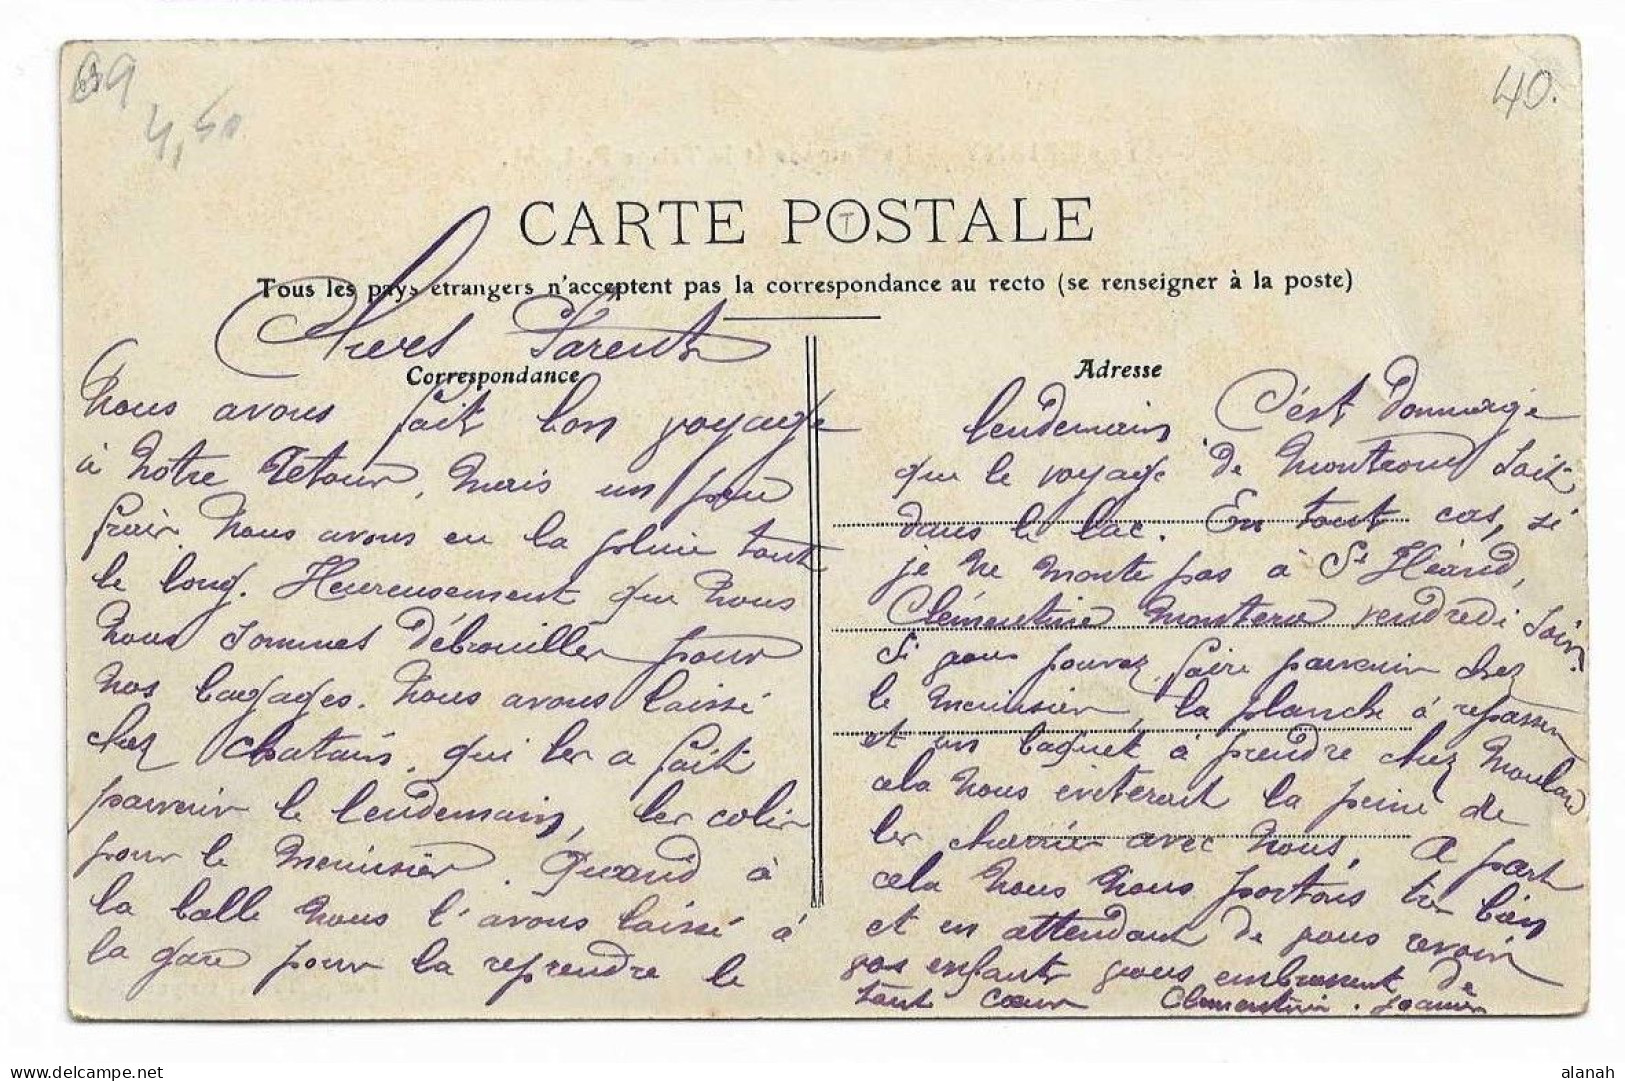 69
4,50
40.
CARTE POSTALE
Tous les pays étrangers n'acceptent pas la correspondance au recto (se renseigner à la poste)
Chers Parents
Correspondance
Nous avons fait bon voyage
à notre retour, mais un peu
frais. Nous avons eu la pluie tout
le long. Heureusement que nous
nous sommes débrouiller pour
nos bagages. Nous avons laissé
chez Chatain, qui les a fait
parvenir le lendemain, les colis
pour le menuisier. Quand à
la balle nous l'avons laissé à
la gare pour la reprendre le
Adresse
lendemain C'est dommage
que le voyage de Montrond soit
dans le lac. En tout cas, si
je ne monte pas à St Héand,
Clémentine montera vendredi soir.
Si vous pouvez faire parvenir chez
le menuisier, la planche à repasser
et un baquet à prendre chez Moulard
cela nous éviterait la peine de
les charrier avec nous. A part
cela nous nous portons très bien
et en attendant de vous revoir
vos enfants vous embrassent de
tout cœur Clémentine. Joannès
alanah